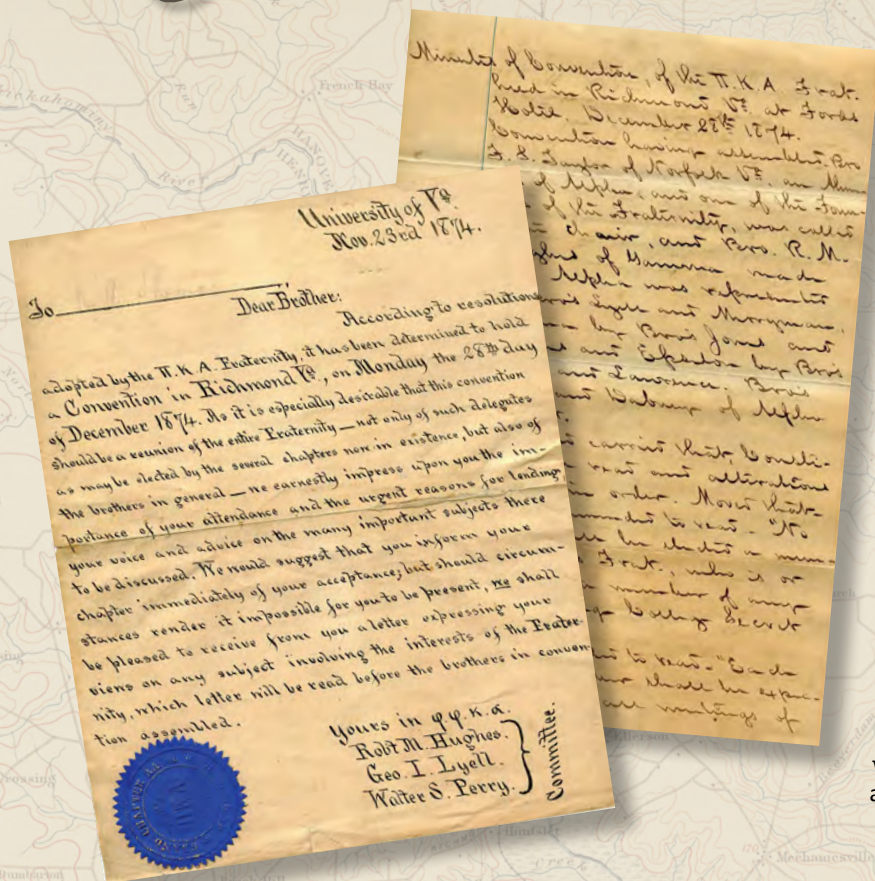 University of Va.
Nov. 23rd 1874.
To
Dear Brother:
According to resolutions
adopted by the Π.K.A. Fraternity, it has been determined to hold
a Convention in Richmond Va., on Monday the 28th day
of December 1874. As it is especially desirable that this convention
should be a reunion of the entire Fraternity — not only of such delegates
as may be elected by the several chapters now in existence, but also of
the brothers in general — we earnestly impress upon you the im-
portance of your attendance and the urgent reasons for lending
your voice and advice on the many important subjects there
to be discussed. We would suggest that you inform your
chapter immediately of your acceptance; but should circum-
stances render it impossible for you to be present, we shall
be pleased to receive from you a letter expressing your
views on any subject involving the interests of the Frater-
nity, which letter will be read before the brothers in conven-
tion assembled.
Yours in φφ.K.A.
Robt M. Hughes.
Geo. I. Lyell.
Walter S. Perry.
Committee.
Minutes of Convention, of the Π.K.A. Frat.
held in Richmond Va. at Fords
Hotel, December 28th 1874.
Convention having assembled, Bro
of Norfolk Va. an Alum
of Alpha, and one of the Foun-
of the Fraternity, was called
chair, and Bro. R. M.
of Gamma made
Alpha was represented
Lyell and Merryman,
by Bros Jones and
and Epsilon by Bros
and Lawrence. Bros
and of Alpha
carried that, Consti-
read and alterations
order. Moved that
to read - "No
be elected a mem-
Frat., who is or
member of any
College Secret
to read - "Each
shall be expec-
all meetings of
French Hay
HANOVER
HENR
River
Run
Creek
Mechanicsville